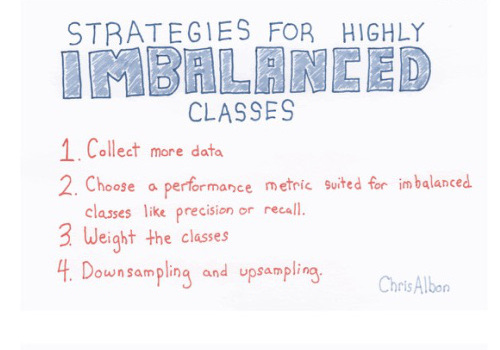 STRATEGIES FOR HIGHLY
IMBALANCED
CLASSES
1. Collect more data
2. Choose a performance metric suited for imbalanced
classes like precision or recall.
3. Weight the classes
4. Downsampling and upsampling.
ChrisAlbon